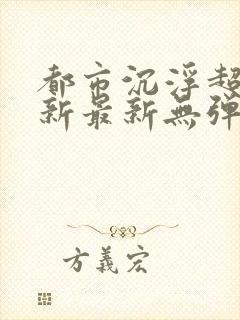 都市沉浮超
新最新無弹
方義宏